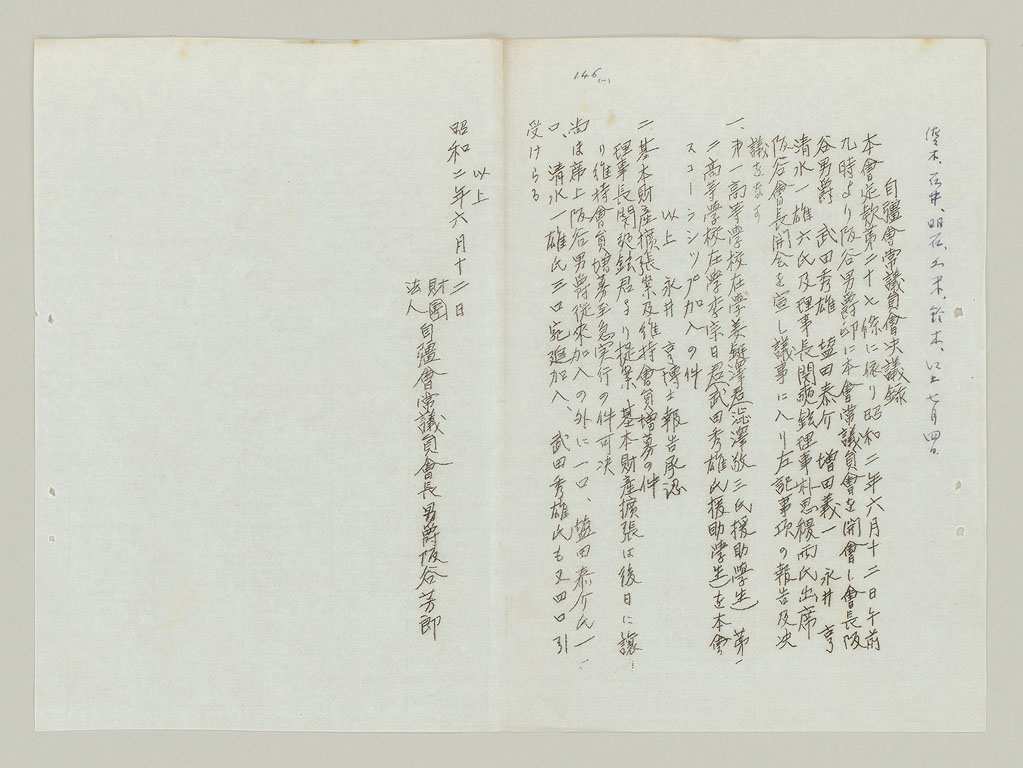 146
鈴木、以上七月四日
自彊會常議員會决議録
本會定款第二十七條に係り昭和二年六月十二日午前
九時より阪谷男爵邸に本會常議員會を開會し會長阪
谷男爵 武田秀雄 塩田泰介 増田義一 永井 亨
清水一雄六氏及理事長関 理事朴思稷両氏出席
阪谷會長開会を宣し議事に入り左記事項の報告及决
議をなす
一、オ一高等学校在学 澤君澁澤敬三氏援助学生 第一
二高等学校在学李宗日君武田秀雄氏援助学生を本會
スコーラシップ加入の件
以上 永井 亨博士報告承認
二 基本財産擴張案及維持會員増募の件
理事長関 君より提案、基本財産擴張は後日に譲
り維持會員増募至急実行の件可决
尚ほ席上阪谷男爵從来加入の外に一口、塩田泰介氏一
口、清水一雄氏三口宛追加入、武田秀雄氏も又四口引
受けらる
以上
昭和二年六月十二日
財團
法人 自彊會常議員會長 男爵阪谷芳郎